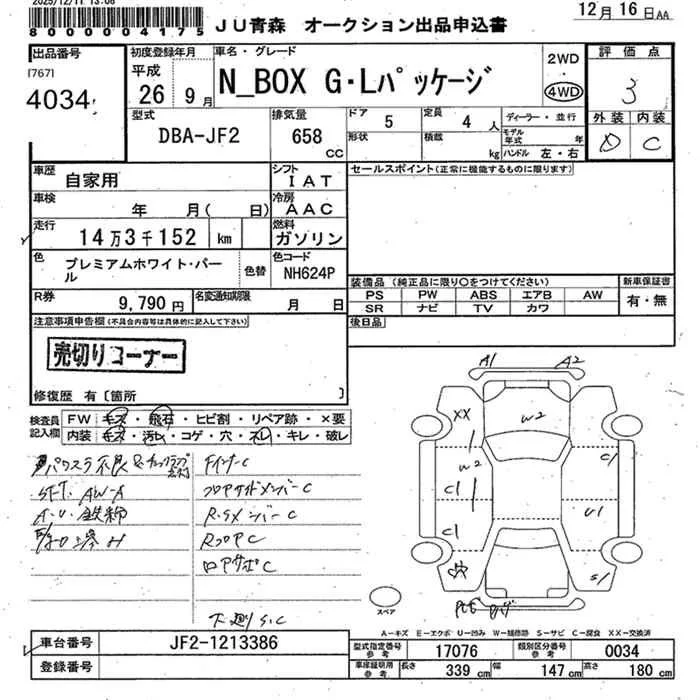 2025/12/11 13:08
8 0 0 0 0 0 4 1 7 5
ＪＵ青森 オークション出品申込書
12月16日AA
出品番号
[767]
4034
初度登録年月
平成
26 9月
車名・グレード
N_BOX G・Lパッケージ
2WD
4WD
評価点
3
型式
DBA-JF2
排気量
658
CC
ドア 5
定員 4 人
形状
積載 kg
ディーラー・並行
モデル年式 年
ハンドル 左・右
外装 内装
D C
車歴
自家用
シフト
IAT
車検
年 月( 日)
冷房
AAC
走行
14万3千152 km
燃料
ガソリン
セールスポイント(正常に機能するものに限ります)
色
プレミアムホワイト・パール
色替
色コード
NH624P
R券
9,790円
名変通知期限
月 日
装備品(純正品に限り○をつけてください)
新車保証書
PS PW ABS エアB AW
SR ナビ TV カワ
有・無
後日品
注意事項申告欄(不具合内容等は具体的に記入して下さい)
売切りコーナー
修復歴 有〔箇所 〕
検査員記入欄
FW キズ・飛石・ヒビ割・リペア跡・×要
内装 キズ・汚レ・コゲ・穴・スレ・キレ・破レ
A1 A2
XX
W2
W2
C1
C1
C1
U1
S1
パワスラ不良
FインナーC
フロアサイドメンバーC
R.SメンバーC
RフロアC
下廻りS.C
スペア
A－キズ E－エクボ U－凹み W－補修跡 S－サビ C－腐食 XX－交換済
車台番号
JF2-1213386
型式指定番号参考
17076
類別区分番号参考
0034
登録番号
車庫証明用参考
長さ 339 cm
幅 147 cm
高さ 180 cm